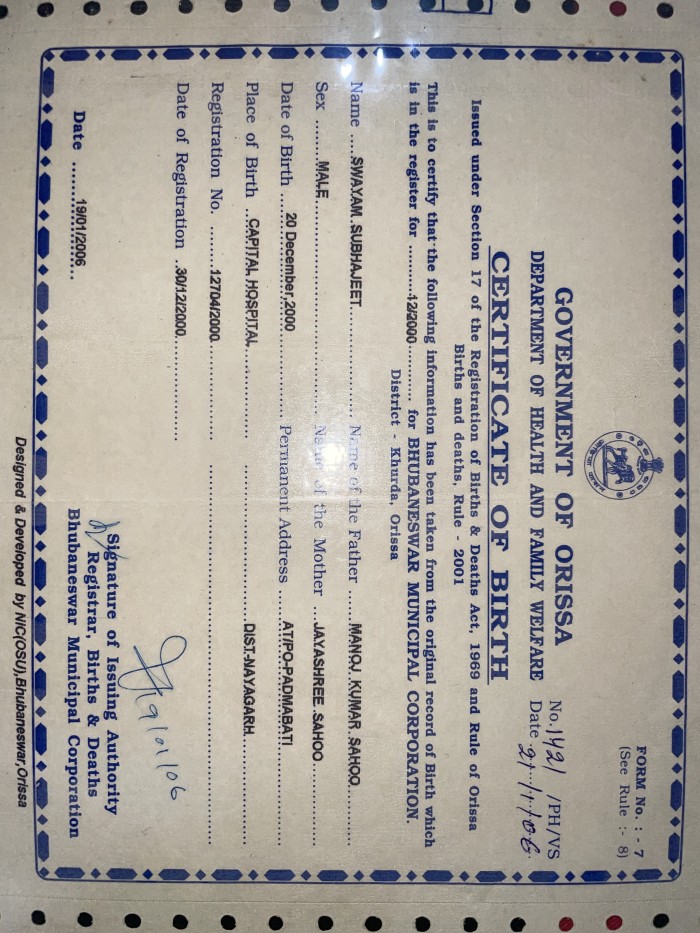 FORM No. : - 7
(See Rule :- 8)
No. 1421 /PH/VS
Date 21/1/06
GOVERNMENT OF ORISSA
DEPARTMENT OF HEALTH AND FAMILY WELFARE
CERTIFICATE OF BIRTH
Issued under Section 17 of the Registration of Births & Deaths Act, 1969 and Rule of Orissa
Births and deaths, Rule - 2001
This is to certify that the following information has been taken from the original record of Birth which
is in the register for ..........12/2000.......... for BHUBANESWAR MUNICIPAL CORPORATION.
District - Khurda, Orissa
Name ....SWAYAM SUBHAJEET.......... Name of the Father ....MANOJ KUMAR SAHOO
Sex ........MALE.......... Name of the Mother ...JAYASHREE SAHOO
Date of Birth ....20 December,2000.......... Permanent Address ....AT/PO-PADMABATI
Place of Birth ..CAPITAL HOSPITAL.......... DIST-NAYAGARH
Registration No. .......12704/2000..........
Date of Registration ..30/12/2000..........
19/01/06
Date ....19/01/2006....
Signature of Issuing Authority
Registrar, Births & Deaths
Bhubaneswar Municipal Corporation
Designed & Developed by NIC(OSU),Bhubaneswar,Orissa